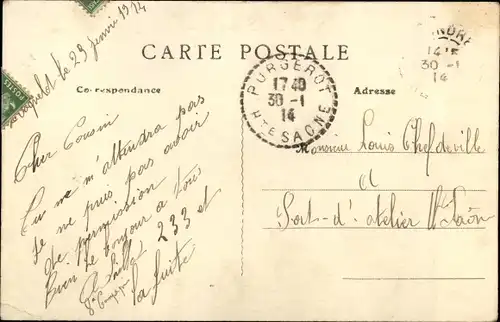 le 29 Janvier 1914
CARTE POSTALE
Correspondance
Adresse
PURGEROT
1740
30 -1
14
Hte SAONE
14
30 -1
14
Cher Cousin
Tu ne m'attendra pas
je ne puis pas avoir
de permission
Bien le bonjour a tous
233 et
la fuite
Monsieur Louis Chefdeville
a
Port-d'atelier Hte Saôn